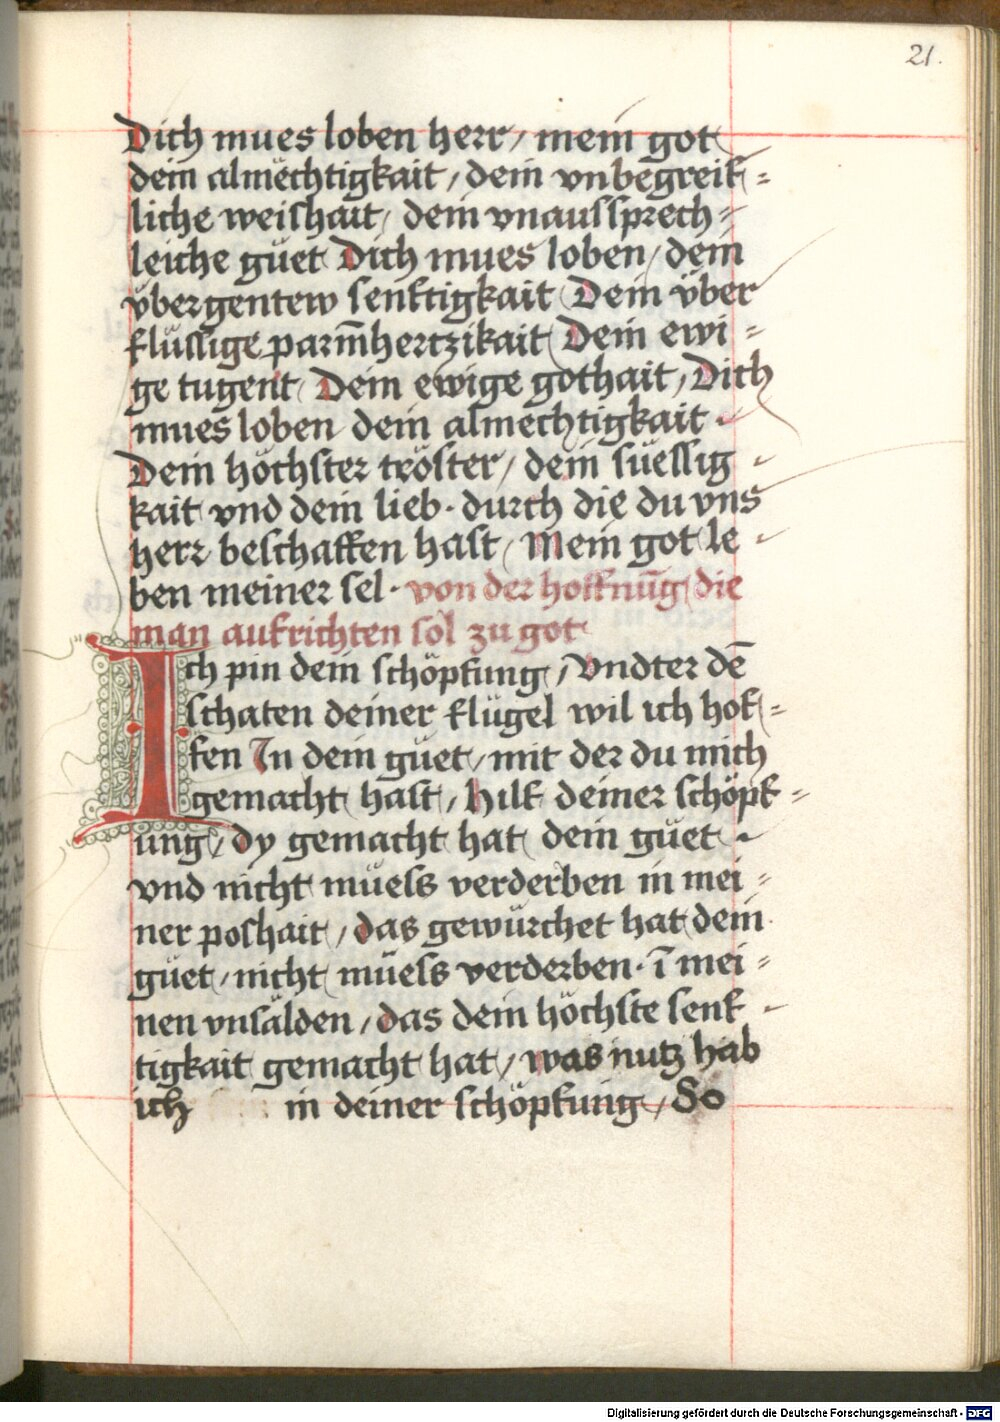 21.
Dich mues loben herr / mein got
dein almëchtigkait / dein vnbegreif=
liche weishait / dein vnaussprech=
leiche güet Dich mues loben / dein
vbergentew senftigkait Dein vber
flüssige parm̄hertzikait Dein ewi=
ge tugent Dein ewige gothait / Dich
mues loben dein almechtigkait
Dein höchster tröster / dein süessig
kait vnd dein lieb · durch die du vns
herr beschaffen hast / Mein got le
ben meiner sel · von der hoffnūg die
man aufrichten sol zu got
Ich pin dein schöpfung / Vndter dē
schaten deiner flügel wil ich hof=
fen In dein güet / mit der du mich
gemacht hast / hilf deiner schöpf=
ung / dy gemacht hat dein güet
vnd nicht müess verderben in mei=
ner poshait / das gewürchet hat dein
güet / nicht müess verderben · ī mei=
nen vnsälden / das dein höchste senf
tigkait gemacht hat / was nutz hab
ich in deiner schöpfung / So
Digitalisierung gefördert durch die Deutsche Forschungsgemeinschaft - DFG